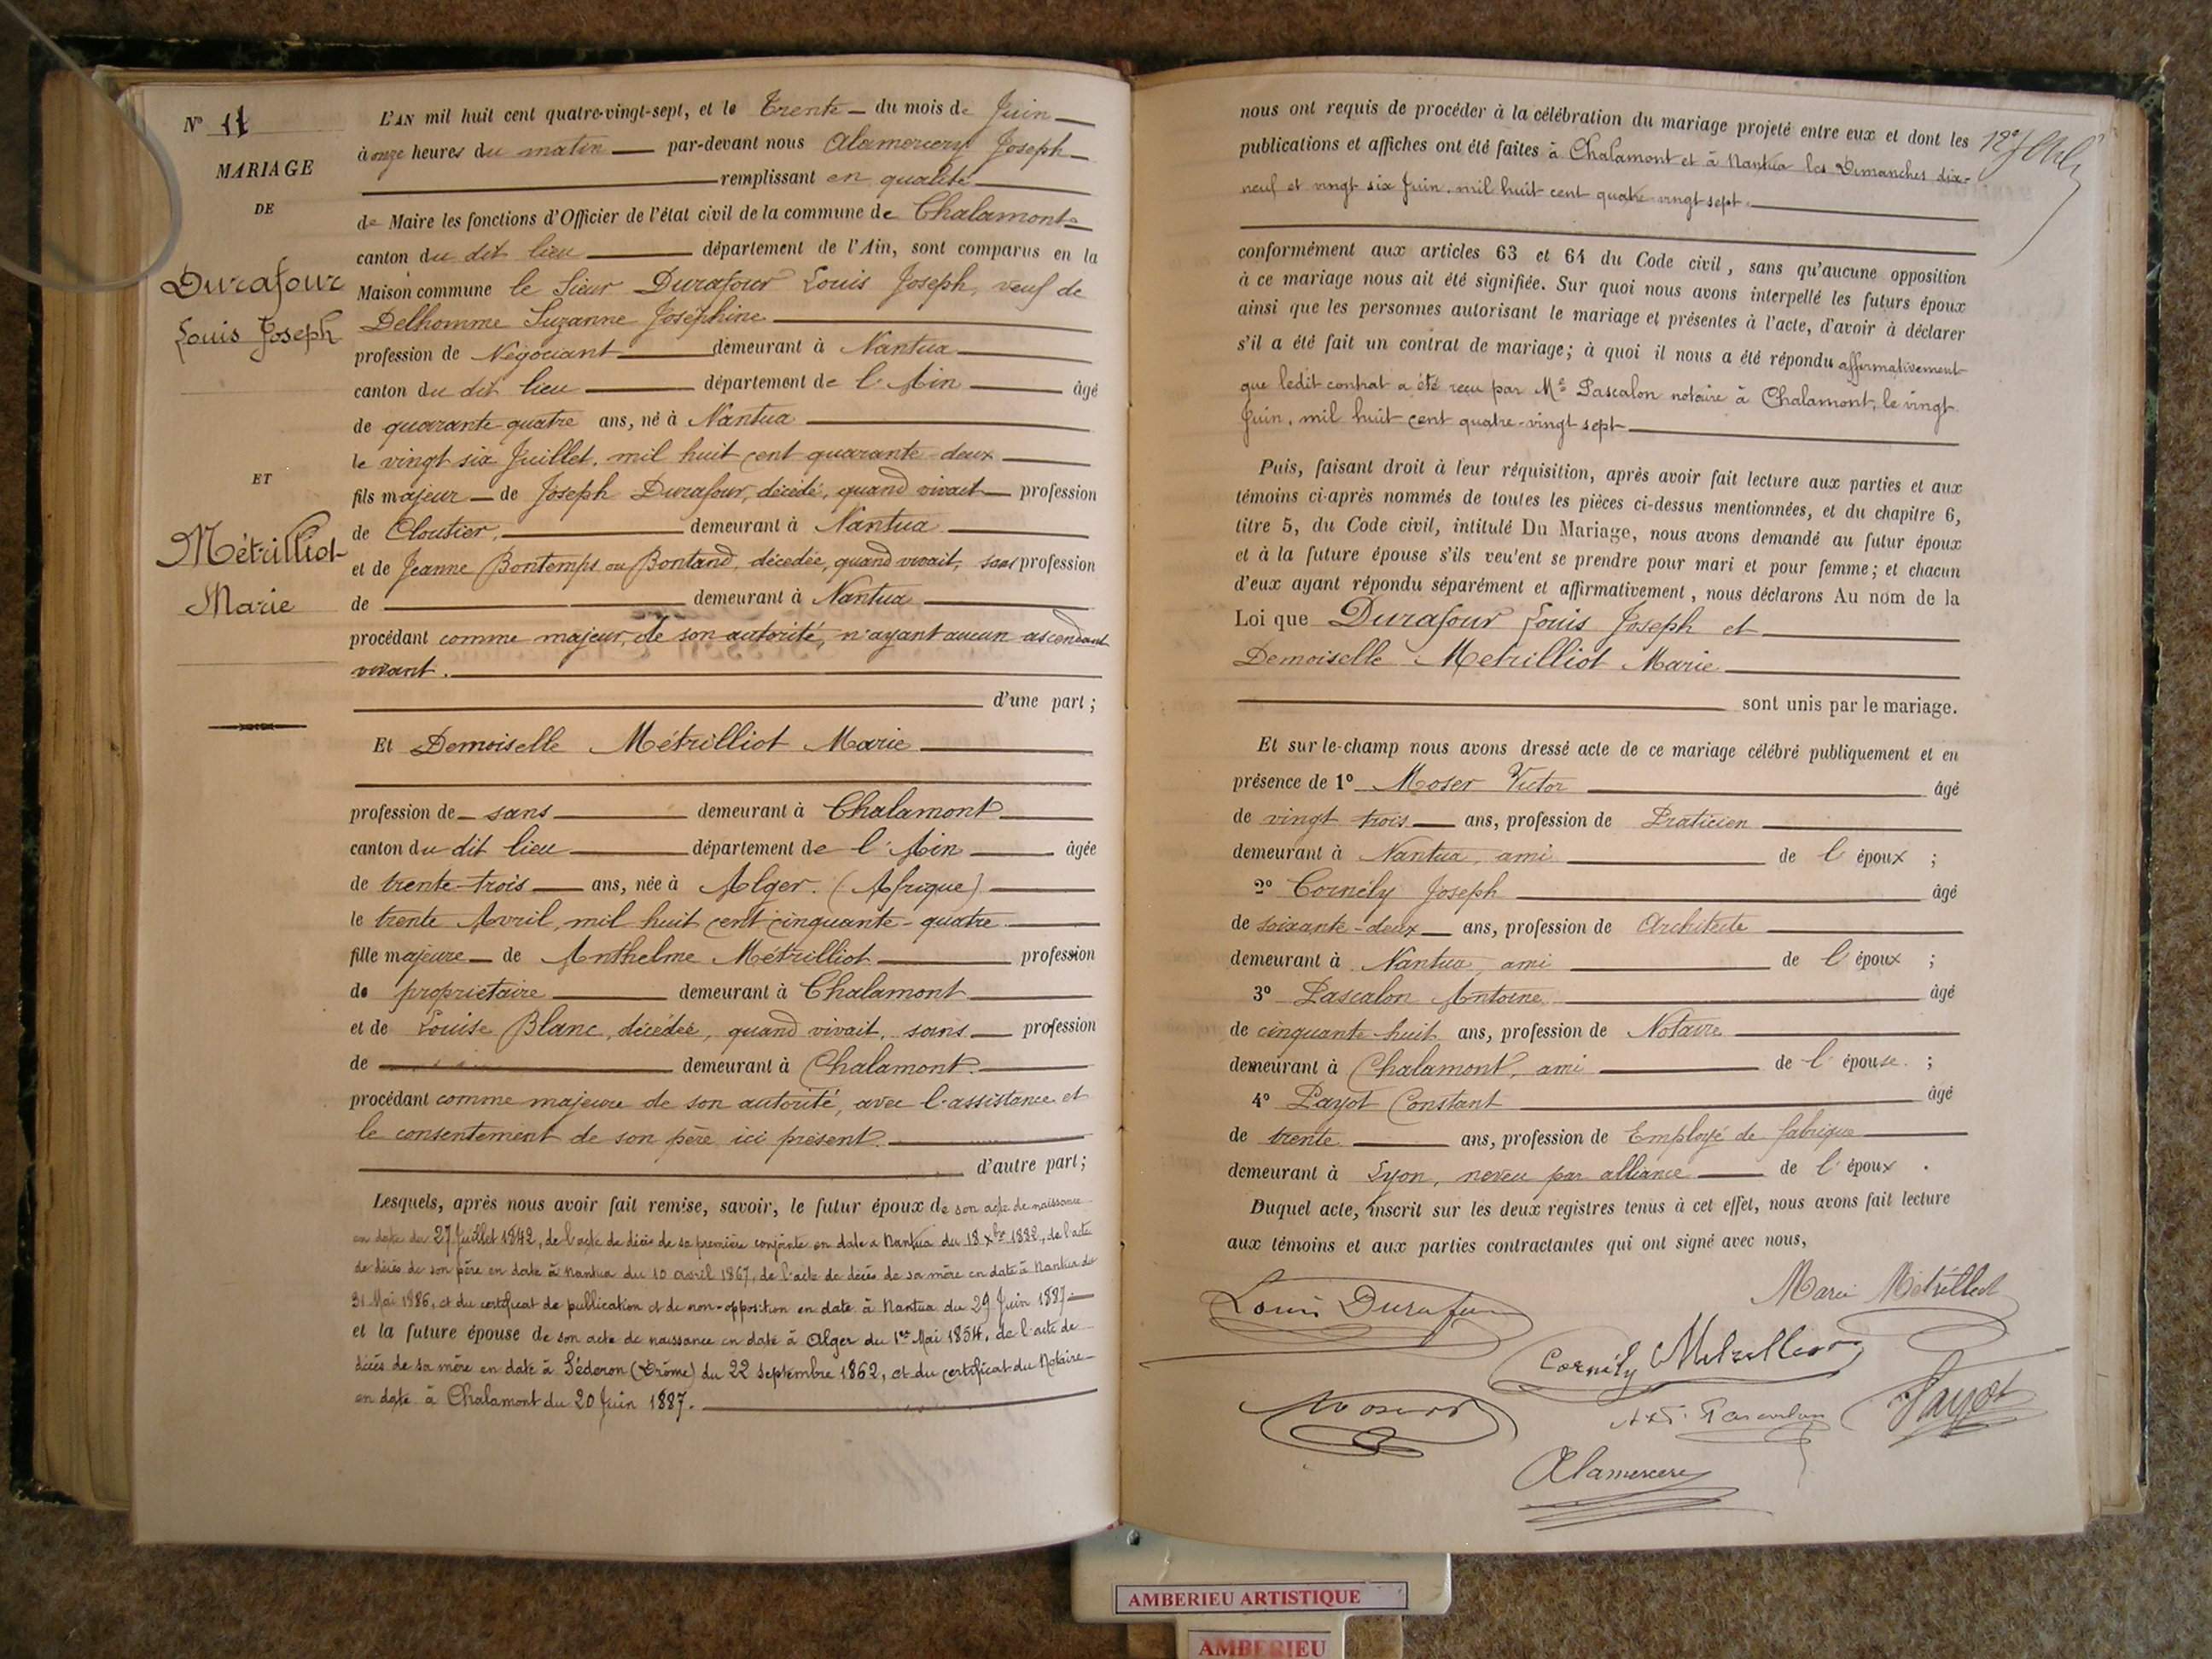 N° 11
MARIAGE
DE
Durafour
Louis Joseph
ET
Métrilliot
Marie
L'AN mil huit cent quatre-vingt-sept, et le Trente du mois de Juin
à onze heures du matin par-devant nous Alamercery Joseph
remplissant en qualité
de Maire les fonctions d'Officier de l'état civil de la commune de Chalamont
canton du dit lieu département de l'Ain, sont comparus en la
Maison commune le Sieur Durafour Louis Joseph, veuf de
Delhomme Suzanne Joséphine
profession de Négociant demeurant à Nantua
canton du dit lieu département de l'Ain âgé
de quarante quatre ans, né à Nantua
le vingt six Juillet, mil huit cent quarante-deux
fils majeur de Joseph Durafour, décédé, quand vivait profession
de Cloutier, demeurant à Nantua
et de Jeanne Bontemps ou Bontand, décedée, quand vivait, sans profession
de demeurant à Nantua
procédant comme majeur, de son autorité, n'ayant aucun ascendant
vivant.
d'une part ;
Et Demoiselle Métrilliot Marie
profession de sans demeurant à Chalamont
canton du dit lieu département de l'Ain âgée
de trente-trois ans, née à Alger. (Afrique)
le trente Avril, mil huit cent cinquante-quatre
fille majeure de Anthelme Métrilliot profession
de propriétaire demeurant à Chalamont
et de Louise Blanc, décédée, quand vivait, sans profession
de demeurant à Chalamont.
procédant comme majeure de son autorité, avec l'assistance et
le consentement de son père ici présent.
d'autre part ;
Lesquels, après nous avoir fait remise, savoir, le futur époux de son acte de naissance
en date du 27 Juillet 1842, de l'acte de décès de sa première conjointe en date à Nantua du 18 Xbre 1882, de l'acte
de décès de son père en date à Nantua du 10 avril 1867, de l'acte de décès de sa mère en date à Nantua du
31 Mai 1886, et du certificat de publication et de non-opposition en date à Nantua du 29 Juin 1887
et la future épouse de son acte de naissance en date à Alger du 1er Mai 1854, de l'acte de
décès de sa mère en date à Séderon (Drôme) du 22 Septembre 1862, et du certificat du Notaire
en date à Chalamont du 20 Juin 1887.
nous ont requis de procéder à la célébration du mariage projeté entre eux et dont les
publications et affiches ont été faites à Chalamont et à Nantua les Dimanches dix-
neuf et vingt six Juin, mil huit cent quatre vingt sept.
conformément aux articles 63 et 64 du Code civil, sans qu'aucune opposition
à ce mariage nous ait été signifiée. Sur quoi nous avons interpellé les futurs époux
ainsi que les personnes autorisant le mariage et présentes à l'acte, d'avoir à déclarer
s'il a été fait un contrat de mariage; à quoi il nous a été répondu affirmativement
que ledit contrat a été reçu par Me Pascalon notaire à Chalamont, le vingt
Juin, mil huit cent quatre-vingt sept
Puis, faisant droit à leur réquisition, après avoir fait lecture aux parties et aux
témoins ci-après nommés de toutes les pièces ci-dessus mentionnées, et du chapitre 6,
titre 5, du Code civil, intitulé Du Mariage, nous avons demandé au futur époux
et à la future épouse s'ils veu'ent se prendre pour mari et pour femme; et chacun
d'eux ayant répondu séparément et affirmativement, nous déclarons Au nom de la
Loi que Durafour Louis Joseph et
Demoiselle Metrilliot Marie
sont unis par le mariage.
Et sur-le-champ nous avons dressé acte de ce mariage célébré publiquement et en
présence de 1° Moser Victor âgé
de vingt trois ans, profession de Praticien
demeurant à Nantua, ami de l'époux ;
2° Cornély Joseph âgé
de soixante-deux ans, profession de Architecte
demeurant à Nantua, ami de l'époux ;
3° Pascalon Antoine âgé
de cinquante-huit ans, profession de Notaire
demeurant à Chalamont, ami de l'épouse. ;
4° Payot Constant âgé
de trente ans, profession de Employé de fabrique
demeurant à Lyon, neveu par alliance de l'époux .
Duquel acte, inscrit sur les deux registres tenus à cet effet, nous avons fait lecture
aux témoins et aux parties contractantes qui ont signé avec nous,
Marie Métrilliot
Louis Durafour
Cornély Metrilliot
Moser
Pascalon
Payot
Alamercery
AMBERIEU ARTISTIQUE
AMBERIEU